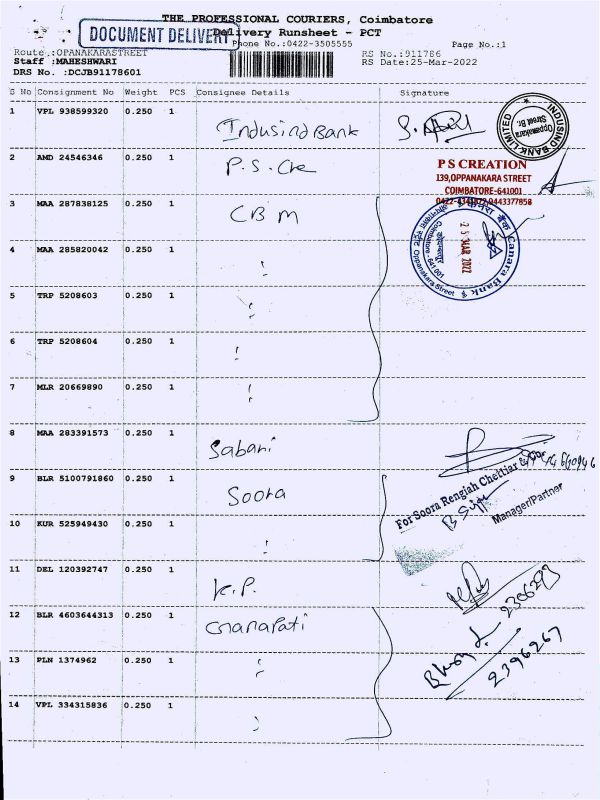 THE PROFESSIONAL COURIERS, Coimbatore
DOCUMENT DELIVERY
Delivery Runsheet - PCT
Phone No.:0422-3505555
Page No.:1
Route :OPANAKARASTREET
RS No.:911786
Staff :MAHESHWARI
RS Date:25-Mar-2022
DRS No. :DCJB91178601
S No Consignment No Weight PCS Consignee Details Signature
1 VPL 938599320 0.250 1 Indusind Bank
INDUSIND BANK LIMITED
Oppanakara Street Br.
2 AMD 24546346 0.250 1 P.S. Cre
P S CREATION
139,OPPANAKARA STREET
COIMBATORE-641001
3 MAA 287838125 0.250 1 CBM
Canara Bank
Oppanakara Street
Coimbatore - 641 001
25 MAR 2022
4 MAA 285820042 0.250 1 "
5 TRP 5208603 0.250 1 "
6 TRP 5208604 0.250 1 "
7 MLR 20669890 0.250 1 "
8 MAA 283391573 0.250 1 Sabari
9 BLR 5100791860 0.250 1 Soora
For Soora Rengiah Chettiar & Co.
Manager/Partner
10 KUR 525949430 0.250 1 "
11 DEL 120392747 0.250 1 K.P.
2306293
12 BLR 4603644313 0.250 1 Gnanapati
2396267
13 PLN 1374962 0.250 1 "
14 VPL 334315836 0.250 1 "